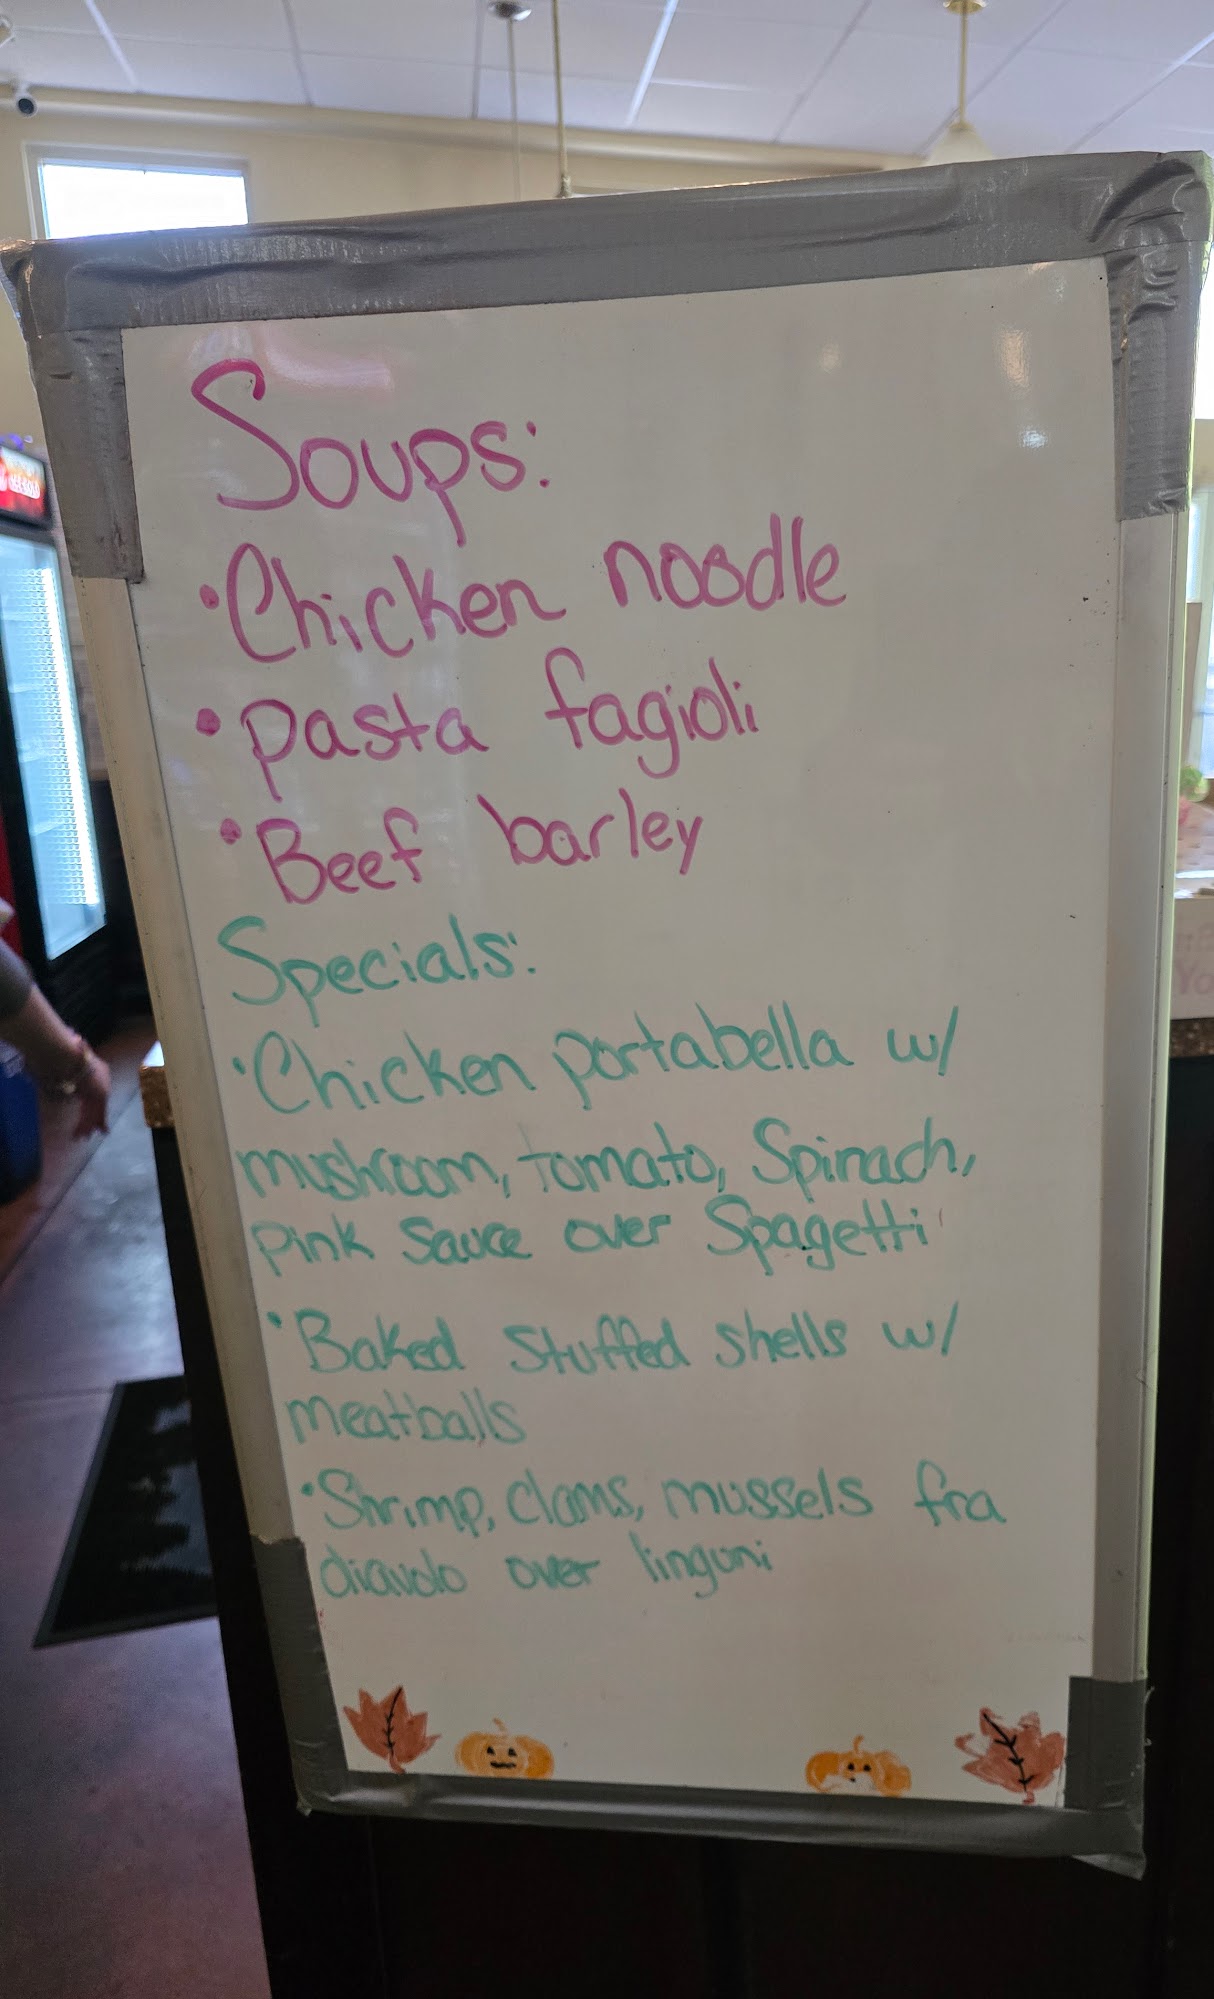 Soups:
• Chicken noodle
• Pasta fagioli
• Beef barley
Specials:
• Chicken portabella w/
mushroom, tomato, Spinach,
pink sauce over Spagetti
• Baked stuffed shells w/
meatballs
• Shrimp, clams, mussels fra
diavolo over linguni
Yo